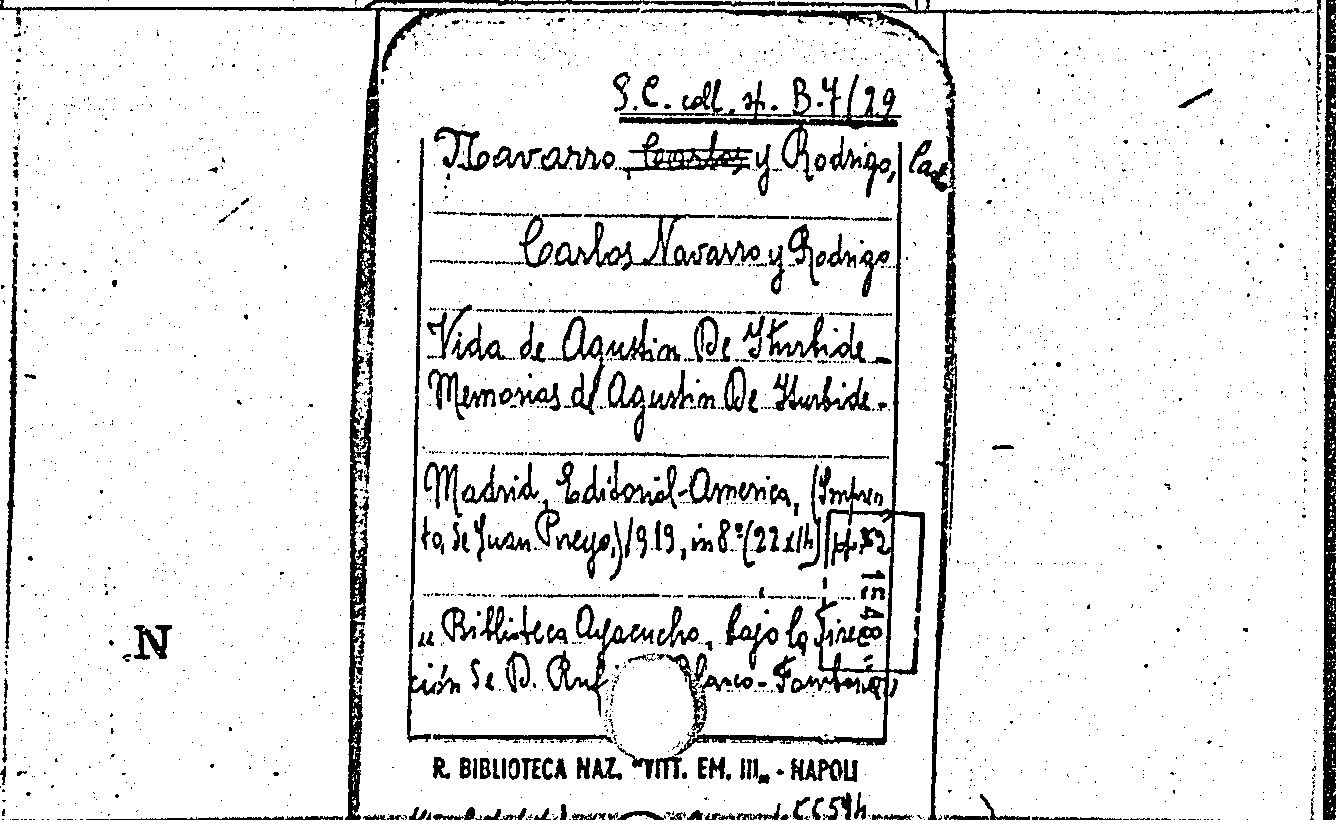 S.C. coll. sp. B.7/29
Navarro Carlos y Rodrigo,
Carlos Navarro y Rodrigo
Vida de Agustin De Iturbide -
Memorias de Agustin De Iturbide.
Madrid, Editorial-America, (Impren
ta de Juan Pueyo,) 1919, in 8° (22x14) pp.
1548
„ Biblioteca Ayacucho, bajo la direc
ción de D. Blanco-Fombona"
N
R. BIBLIOTECA NAZ. "VITT. EM. III„ - NAPOLI